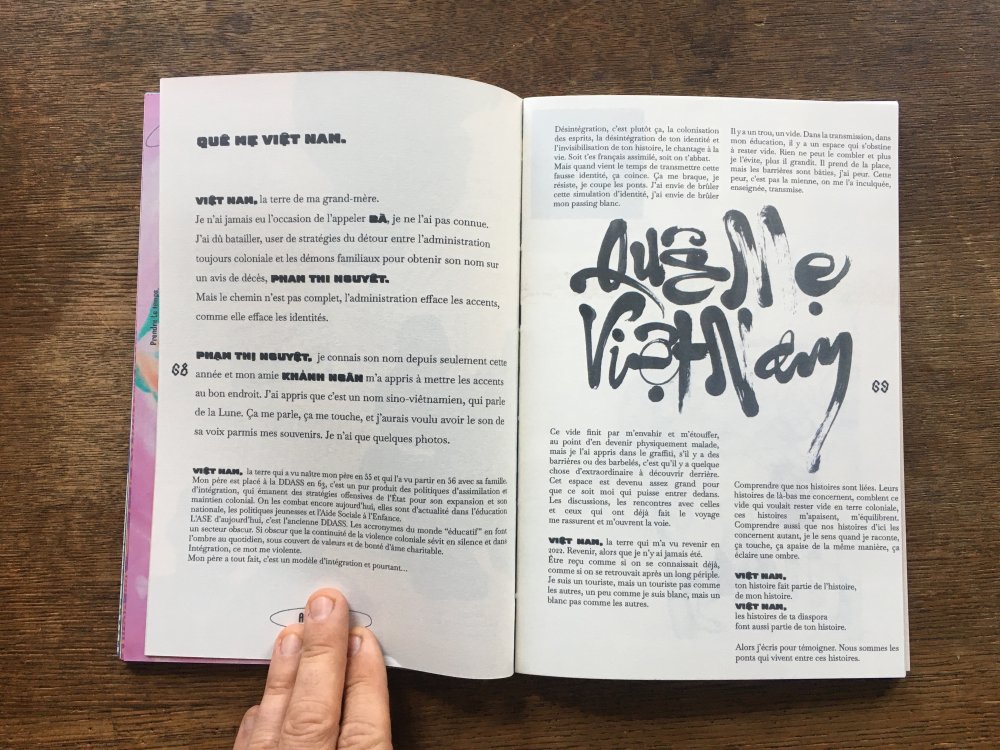 QUÊ MẸ VIỆT NAM.
VIỆT NAM, la terre de ma grand-mère.
Je n'ai jamais eu l'occasion de l'appeler BÀ, je ne l'ai pas connue.
J'ai dû batailler, user de stratégies du détour entre l'administration
toujours coloniale et les démons familiaux pour obtenir son nom sur
un avis de décés, PHAM THI NGUYÊT.
Mais le chemin n'est pas complet, l'administration efface les accents,
comme elle efface les identités.
PHẠM THỊ NGUYỆT, je connais son nom depuis seulement cette
année et mon amie KHÁNH NGÂN m'a appris à mettre les accents
au bon endroit. J'ai appris que c'est un nom sino-viêtnamien, qui parle
de la Lune. Ça me parle, ça me touche, et j'aurais voulu avoir le son de
sa voix parmis mes souvenirs. Je n'ai que quelques photos.
VIỆT NAM, la terre qui a vu naître mon père en 55 et qui l'a vu partir en 56 avec sa famille.
Mon père est placé à la DDASS en 63, c'est un pur produit des politiques d'assimilation et
d'intégration, qui émanent des stratégies offensives de l'État pour son expansion et son
maintien colonial. On les combat encore aujourd'hui, elles sont d'actualité dans l'éducation
nationale, les politiques jeunesses et l'Aide Sociale à l'Enfance.
L'ASE d'aujourd'hui, c'est l'ancienne DDASS. Les accronymes du monde "éducatif" en font
un secteur obscur. Si obscur que la continuité de la violence coloniale sévit en silence et dans
l'ombre au quotidien, sous couvert de valeurs et de bonté d'âme charitable.
Intégration, ce mot me violente.
Mon père a tout fait, c'est un modèle d'intégration et pourtant...
68
Prendre Le temps
Désintégration, c'est plutôt ça, la colonisation
des esprits, la désintégration de ton identité et
l'invisibilisation de ton histoire, le chantage à la
vie. Soit t'es français assimilé, soit on t'abbat.
Mais quand vient le temps de transmettre cette
fausse identité, ça coince. Ça me braque, je
résiste, je coupe les ponts. J'ai envie de brûler
cette simulation d'identité, j'ai envie de brûler
mon passing blanc.
Il y a un trou, un vide. Dans la transmission, dans
mon éducation, il y a un espace qui s'obstine
à rester vide. Rien ne peut le combler et plus
je l'évite, plus il grandit. Il prend de la place,
mais les barrières sont bâties, j'ai peur. Cette
peur, c'est pas la mienne, on me l'a inculquée,
enseignée, transmise.
Quê Mẹ
Việt Nam
69
Ce vide finit par m'envahir et m'étouffer,
au point d'en devenir physiquement malade,
mais je l'ai appris dans le graffiti, s'il y a des
barrières ou des barbelés, c'est qu'il y a quelque
chose d'extraordinaire à découvrir derrière.
Cet espace est devenu assez grand pour
que ce soit moi qui puisse entrer dedans.
Les discussions, les rencontres avec celles
et ceux qui ont déjà fait le voyage
me rassurent et m'ouvrent la voie.
VIỆT NAM, la terre qui m'a vu revenir en
2022. Revenir, alors que je n'y ai jamais été.
Être reçu comme si on se connaissait déjà,
comme si on se retrouvait après un long périple.
Je suis un touriste, mais un touriste pas comme
les autres, un peu comme je suis blanc, mais un
blanc pas comme les autres.
Comprendre que nos histoires sont liées. Leurs
histoires de là-bas me concernent, comblent ce
vide qui voulait rester vide en terre coloniale,
ces histoires m'apaisent, m'équilibrent.
Comprendre aussi que nos histoires d'ici les
concernent autant, je le sens quand je raconte,
ça touche, ça apaise de la même manière, ça
éclaire une ombre.
VIỆT NAM,
ton histoire fait partie de l'histoire,
de mon histoire.
VIỆT NAM,
les histoires de ta diaspora
font aussi partie de ton histoire.
Alors j'écris pour témoigner. Nous sommes les
ponts qui vivent entre ces histoires.